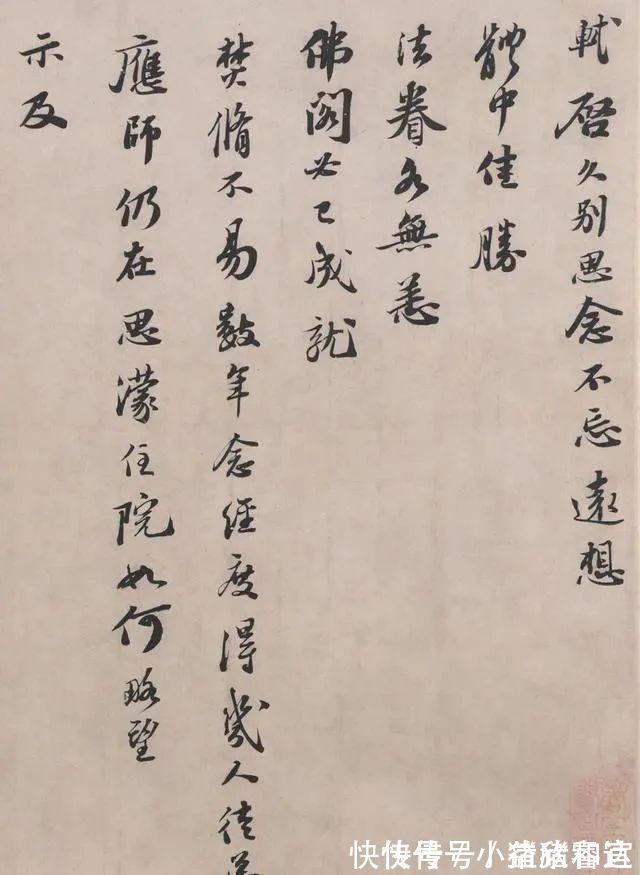 軾啓久别思念不忘遠想
體中佳勝
法眷各無恙
佛閣必已成就
焚脩不易數年念經度得幾人徒弟
應師仍在思濛住院如何略望
示及
快传号/小猪猪和连